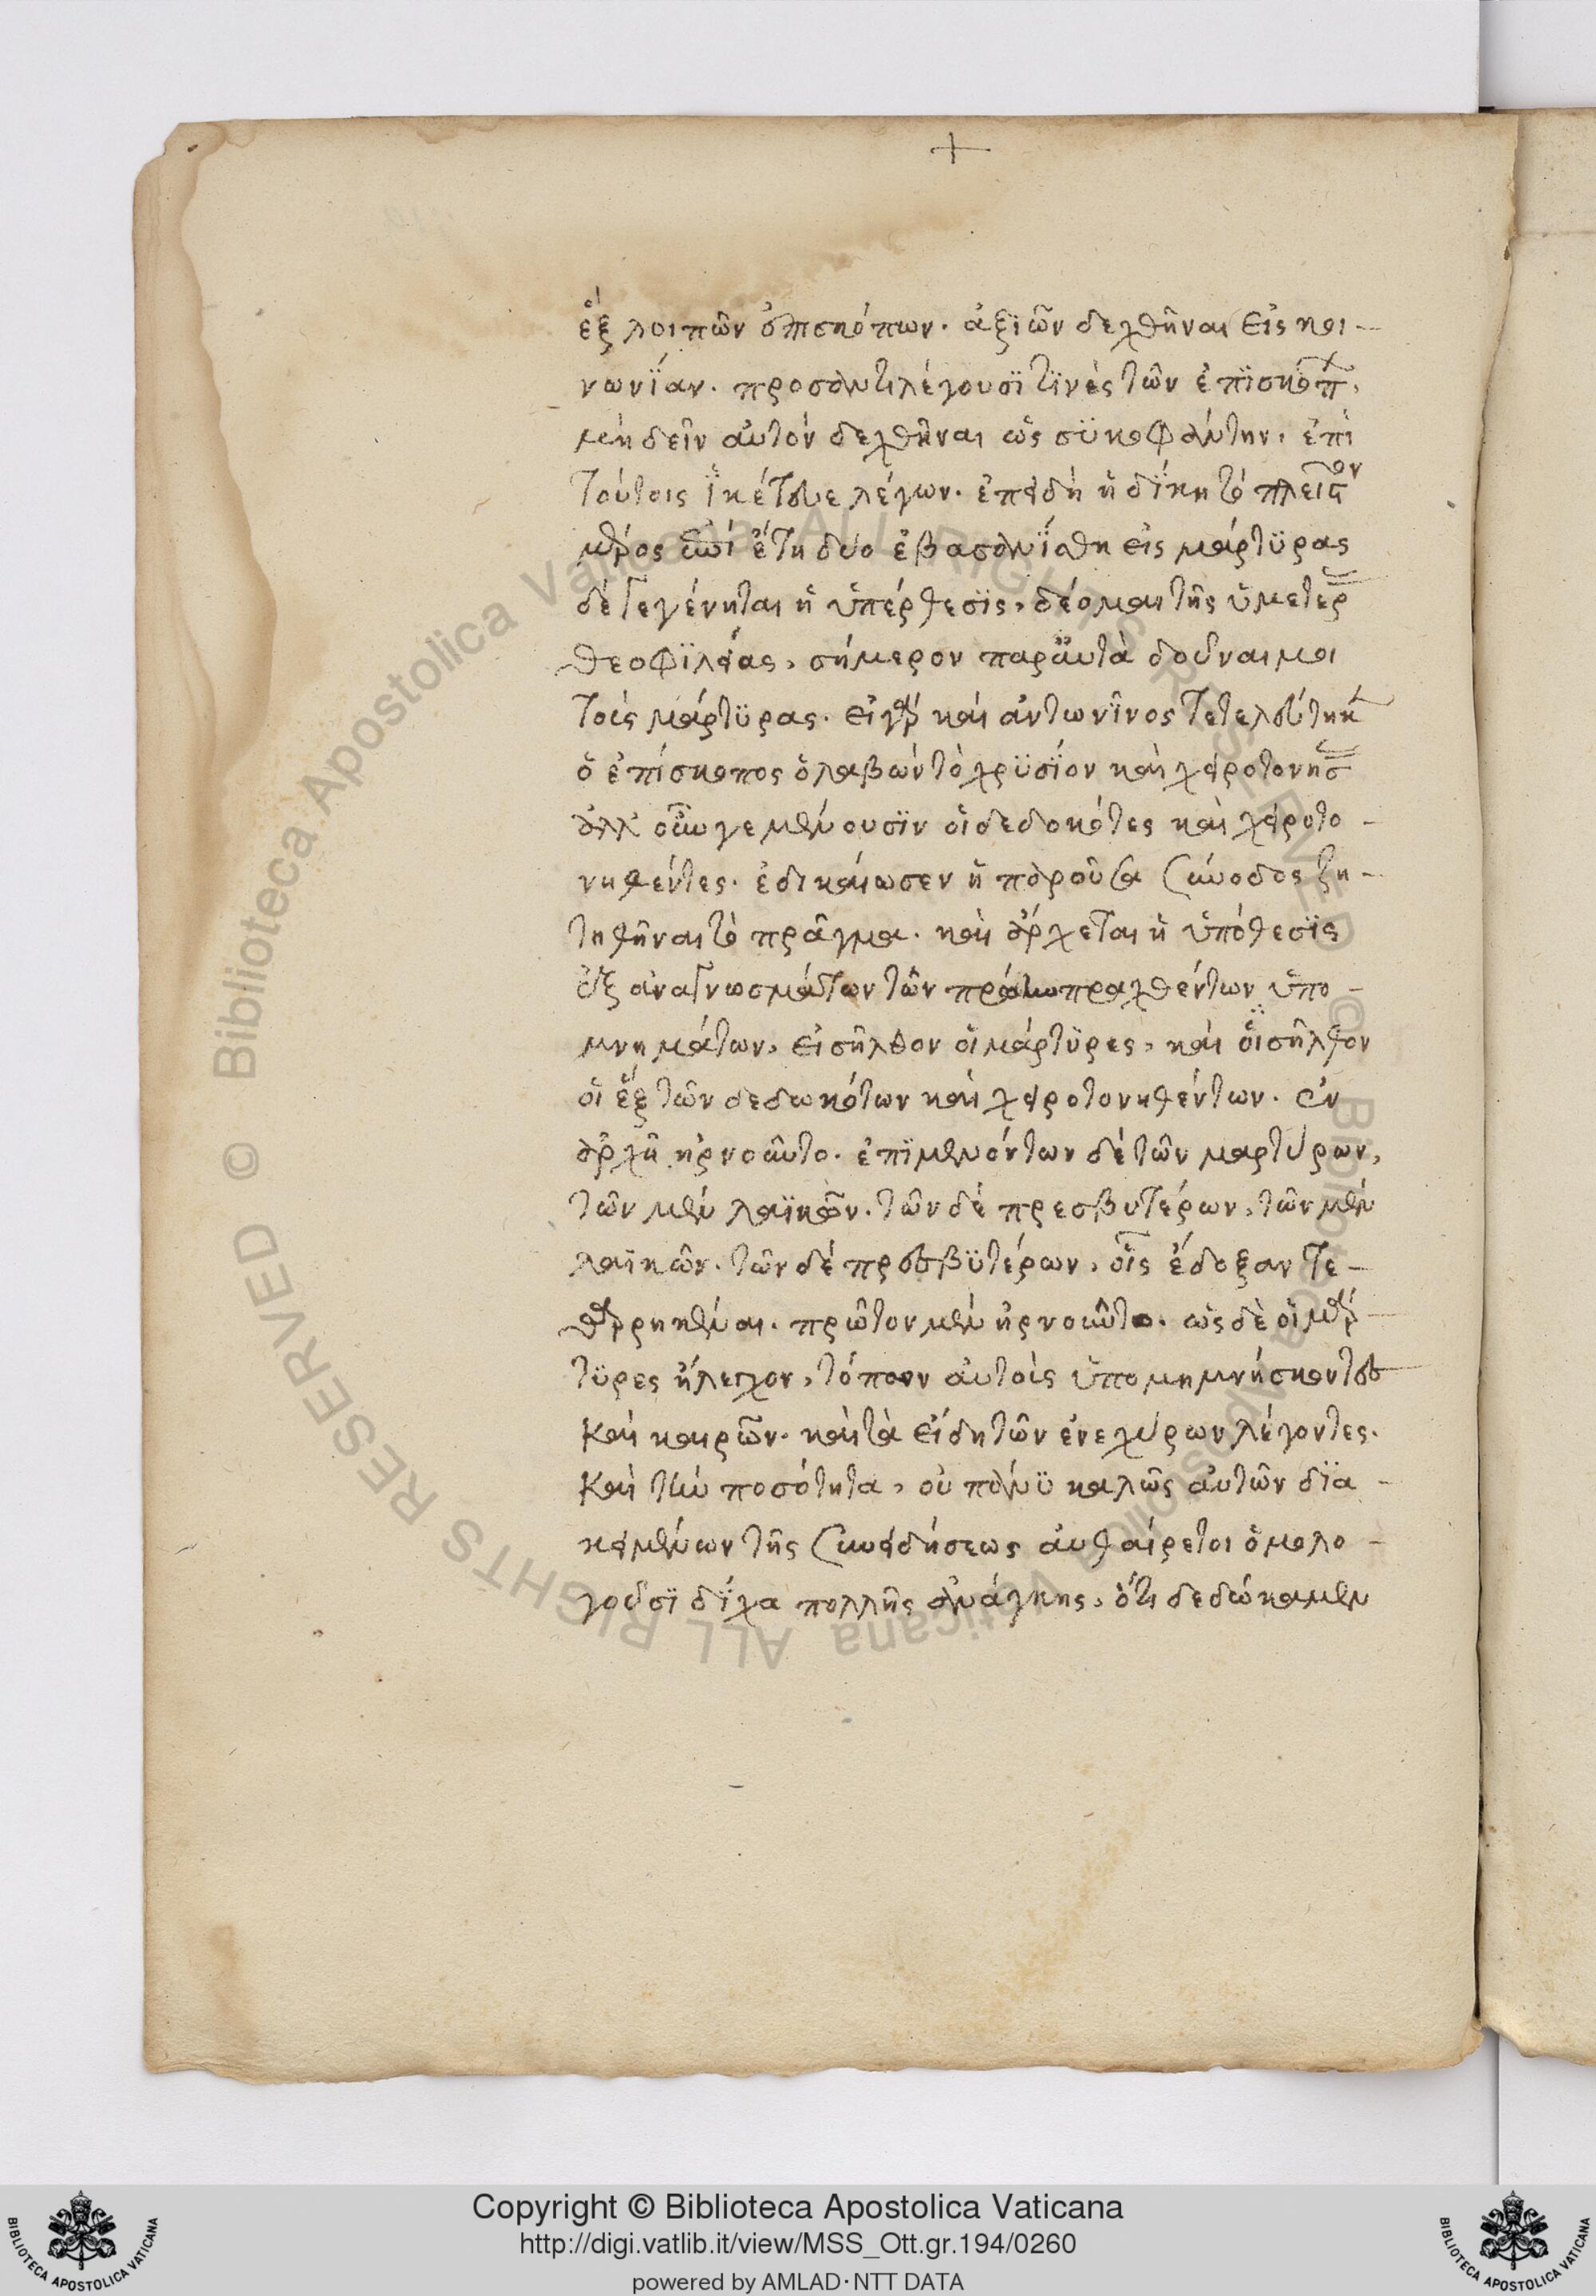 +
ἓξ λοιπῶν ἐπισκόπων. ἀξιῶν δεχθῆναι εἰς κοι-
νωνΐαν. προσαντιλέγουσϊ τϊνὲς τῶν ἐπϊσκόπ,
μὴ δεῖν αὐτὸν δεχθῆναι ὡς συκοφάντην. ἐπὶ
τούτοις ἱκέτευε λέγων. ἐπειδὴ ἡ δΐκη τὸ πλεῖστον
μέρος ἐπὶ ἔτη δύο ἐβασανΐσθη εἰς μάρτϋρας
δὲ γεγένηται ἡ ὑπέρθεσϊς, δέομαι τῆς ὑμετέρ
θεοφϊλείας, σήμερον παραυτὰ δοῦναι μοι
τοὺς μάρτϋρας. εἰ γὰρ καὶ ἀντωνῖνος τετελεύτηκ
ὁ ἐπίσκοπος ὁ λαβὼν τὸ χρϋσΐον καὶ χειροτονήσ
ἀλλ' οὖν γε μένουσϊν οἱ δεδοκότες καὶ χειροτο-
νηθέντες. ἐδικαίωσεν ἡ παροῦσα σύνοδος ζη-
τηθῆναι τὸ πρᾶγμα. καὶ ἄρχεται ἡ ὑπόθεσϊς
ἐξ ἀναγνωσμάτων τῶν πραχθέντων ὑπο-
μνημάτων, εἰσῆλθον οἱ μάρτϋρες, καὶ εἰσῆλθον
οἱ ἓξ τῶν δεδωκότων καὶ χειροτονηθέντων. ἐν
ἀρχῇ ἠρνοῦντο. ἐπϊμενόντων δὲ τῶν μαρτύρων,
τῶν μὲν λαϊκῶν. τῶν δὲ πρεσβυτέρων, τῶν μὲν
λαϊκῶν. τῶν δὲ πρεσβϋτέρων, οἷς ἔδοξαν τε-
θαρρηκέναι. πρῶτον μὲν ἠρνοῦντο. ὡς δὲ οἱ μάρ-
τϋρες ἤλεγχον, τόπων αὐτοὺς ὑπομημνήσκοντες
καὶ καιρῶν. καὶ τὰ εἴδη τῶν ἐνεχύρων λέγοντες.
καὶ τὴν ποσότητα, οὐ πάνϋ καλῶς αὐτῶν δϊα-
κειμένων τῆς συνειδήσεως αὐθαίρετοι ὁμολο-
γοῦσϊ δΐχα πολλῆς ἀνάγκης, ὅτι δεδώκαμεν
Copyright © Biblioteca Apostolica Vaticana
http://digi.vatlib.it/view/MSS_Ott.gr.194/0260
powered by AMLAD·NTT DATA
BIBLIOTECA APOSTOLICA VATICANA
BIBLIOTECA APOSTOLICA VATICANA
© Biblioteca Apostolica Vaticana ALL RIGHTS RESERVED © Biblioteca Apostolica Vaticana ALL RIGHTS RESERVED